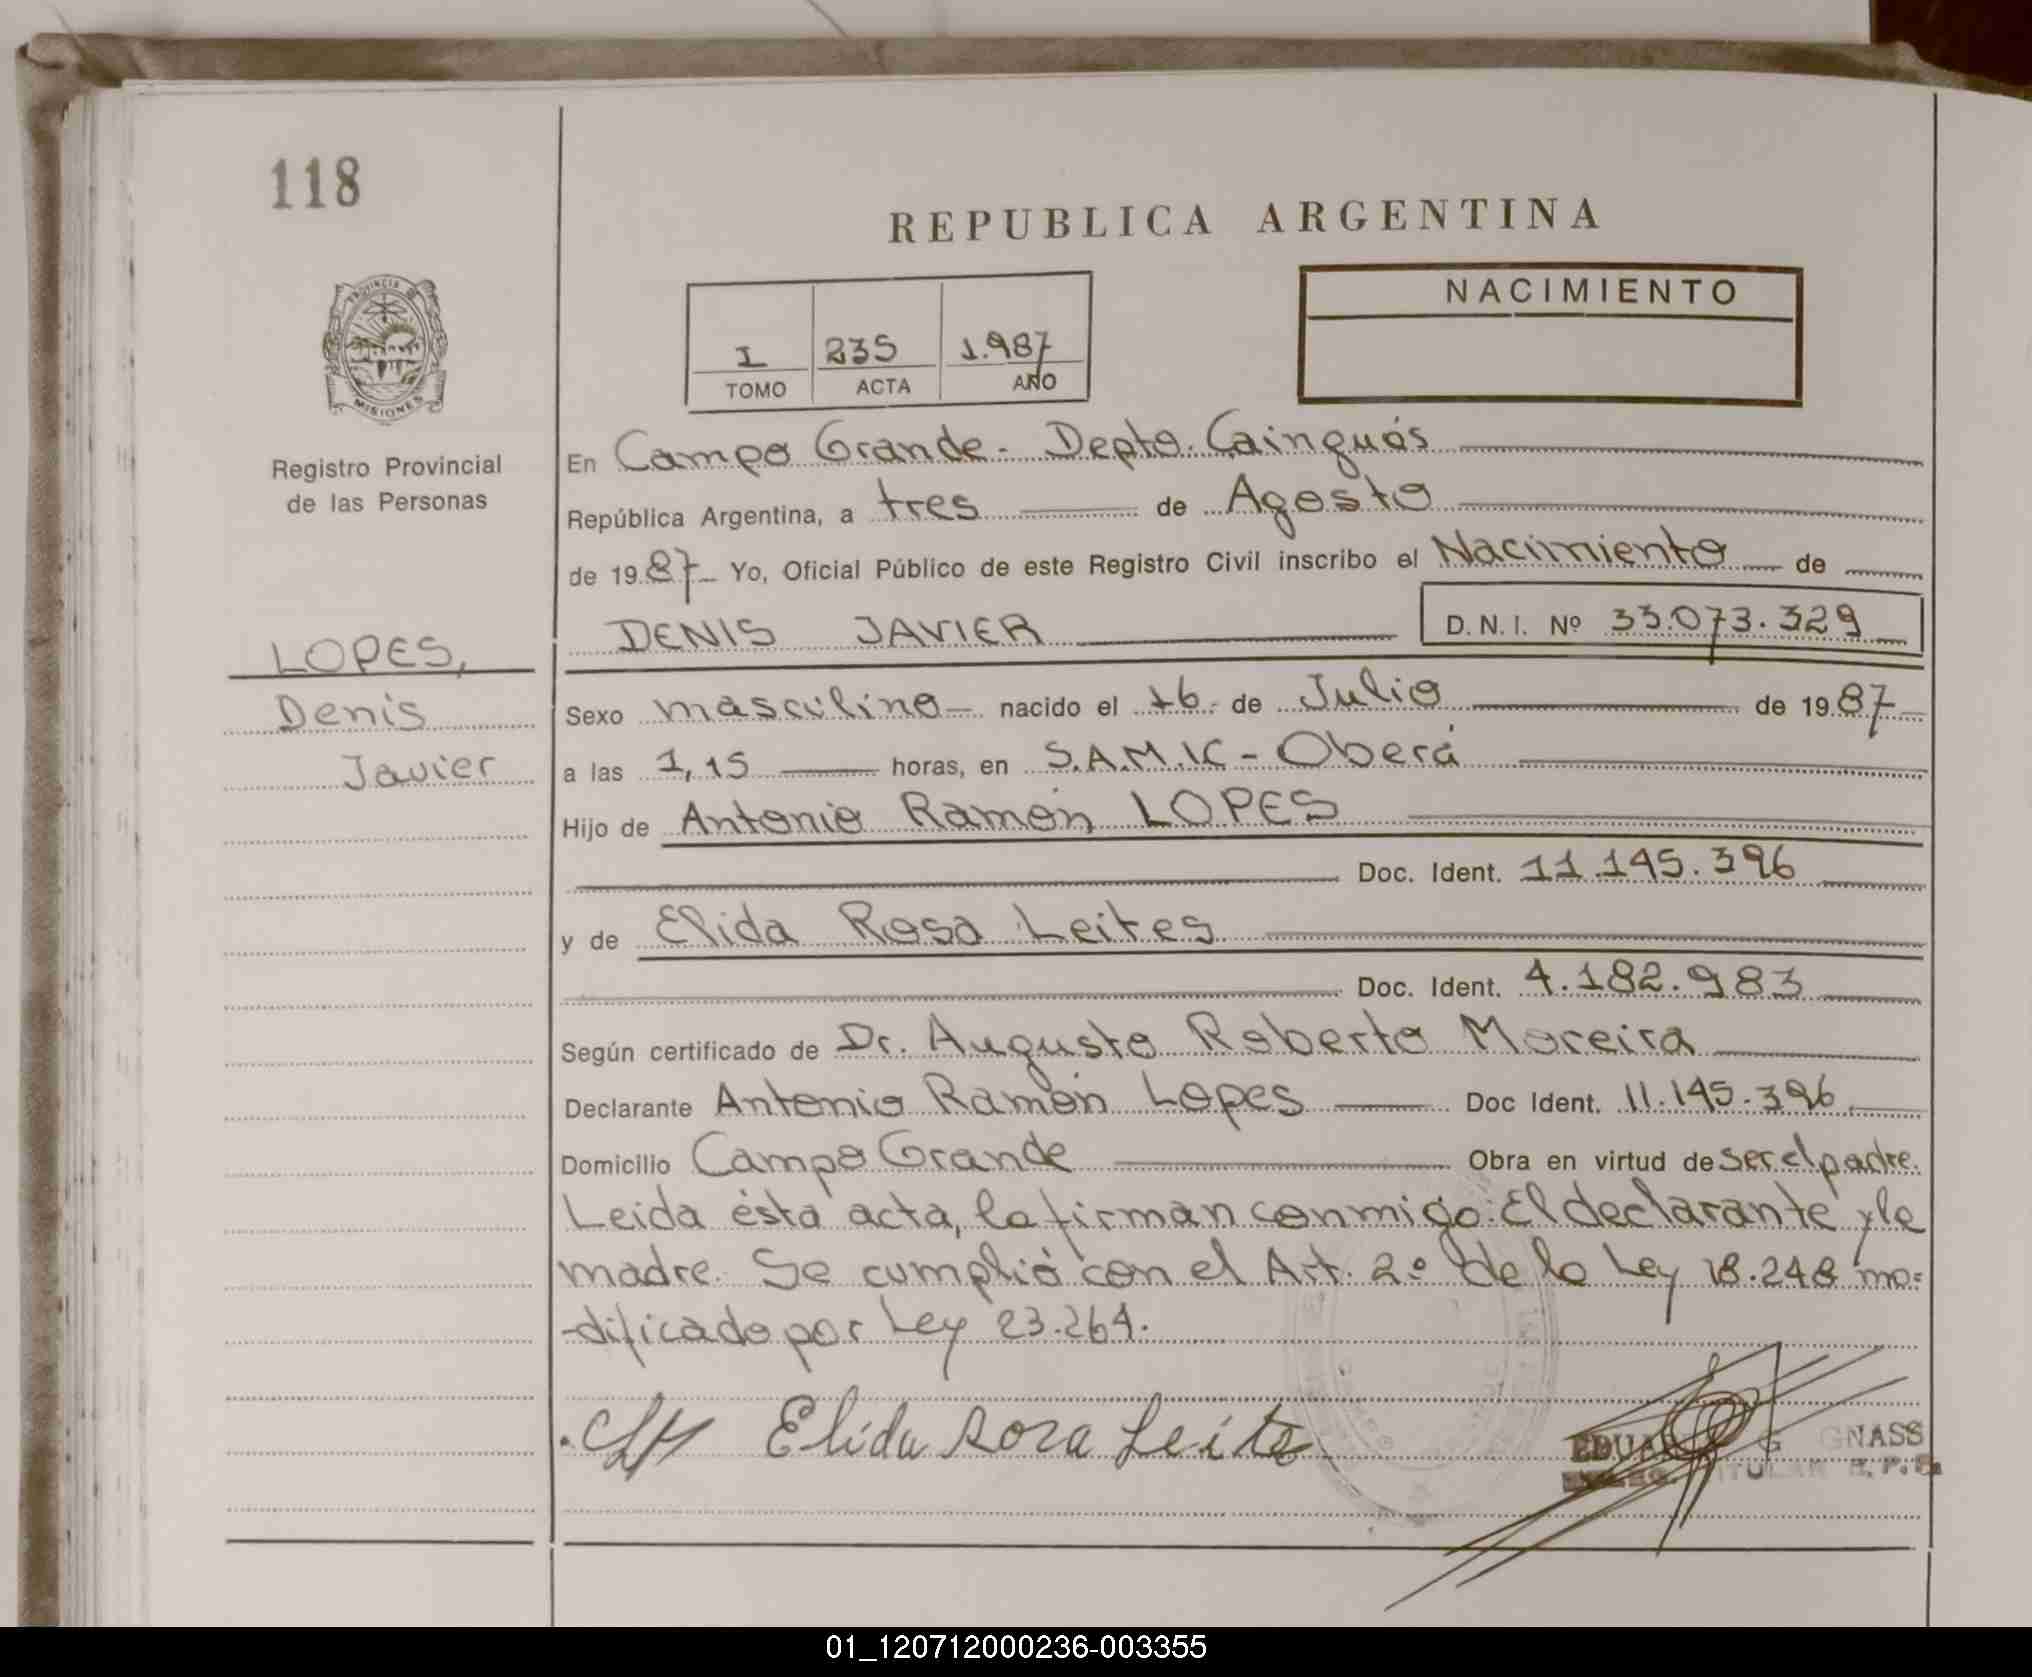 118
REPUBLICA ARGENTINA
PROVINCIA DE
MISIONES
NACIMIENTO
I 235 1.987
TOMO ACTA AÑO
Registro Provincial
de las Personas
En Campo Grande - Depto. Cainguás
República Argentina, a tres de Agosto
de 1987 Yo, Oficial Público de este Registro Civil inscribo el Nacimiento de
DENIS JAVIER D.N.I. Nº 33.073.329
LOPES,
Denis
Javier
Sexo masculino nacido el 16 de Julio de 1987
a las 1,15 horas, en S.A.M.I.C - Oberá
Hijo de Antonio Ramón LOPES
Doc. Ident. 11.145.396
y de Elida Rosa Leites
Doc. Ident. 4.182.983
Según certificado de Dr. Augusto Roberto Moreira
Declarante Antonio Ramón Lopes Doc Ident. 11.145.396
Domicilio Campo Grande Obra en virtud de ser el padre.
Leida ésta acta, la firman conmigo: El declarante y la
madre. Se cumplió con el Art. 2º de la Ley 18.248 mo=
-dificado por Ley 23.264.
Elida Rosa Leites
G GNASS
TITULAR R.P.P.
01_120712000236-003355